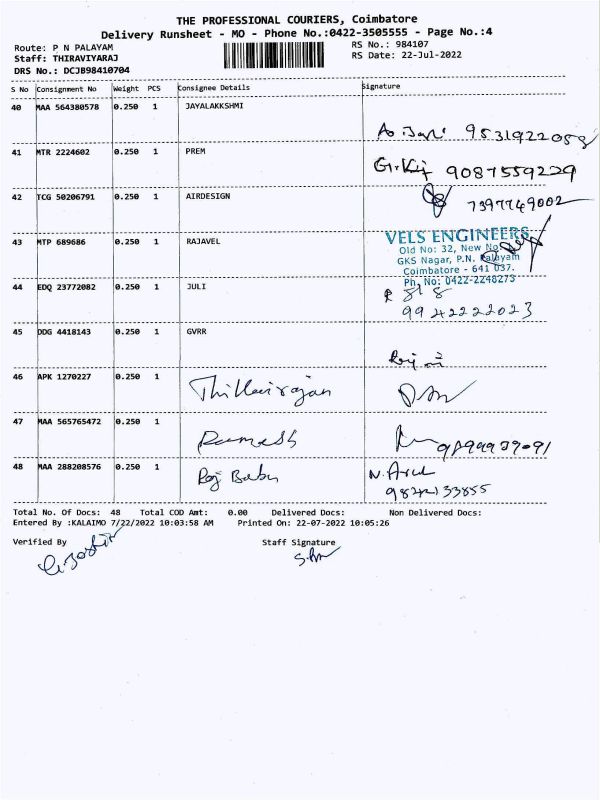 THE PROFESSIONAL COURIERS, Coimbatore
Delivery Runsheet - MO - Phone No.:0422-3505555 - Page No.:4
Route: P N PALAYAM RS No.: 984107
Staff: THIRAVIYARAJ RS Date: 22-Jul-2022
DRS No.: DCJB98410704
S No Consignment No Weight PCS Consignee Details Signature
40 MAA 564380578 0.250 1 JAYALAKKSHMI
9531922058
41 MTR 2224602 0.250 1 PREM
9087559229
42 TCG 50206791 0.250 1 AIRDESIGN
7397749002
43 MTP 689686 0.250 1 RAJAVEL
VELS ENGINEERS
Old No: 32, New No:
GKS Nagar, P.N. Palayam
Coimbatore - 641 037.
Ph. No: 0422-2248273
44 EDQ 23772082 0.250 1 JULI
9942222023
45 DDG 4418143 0.250 1 GVRR
46 APK 1270227 0.250 1 Thillairajan
47 MAA 565765472 0.250 1 Ramesh
48 MAA 288208576 0.250 1 Raj Babu N. Arul
Total No. Of Docs: 48 Total COD Amt: 0.00 Delivered Docs: Non Delivered Docs:
Entered By :KALAIMO 7/22/2022 10:03:58 AM Printed On: 22-07-2022 10:05:26
Verified By Staff Signature